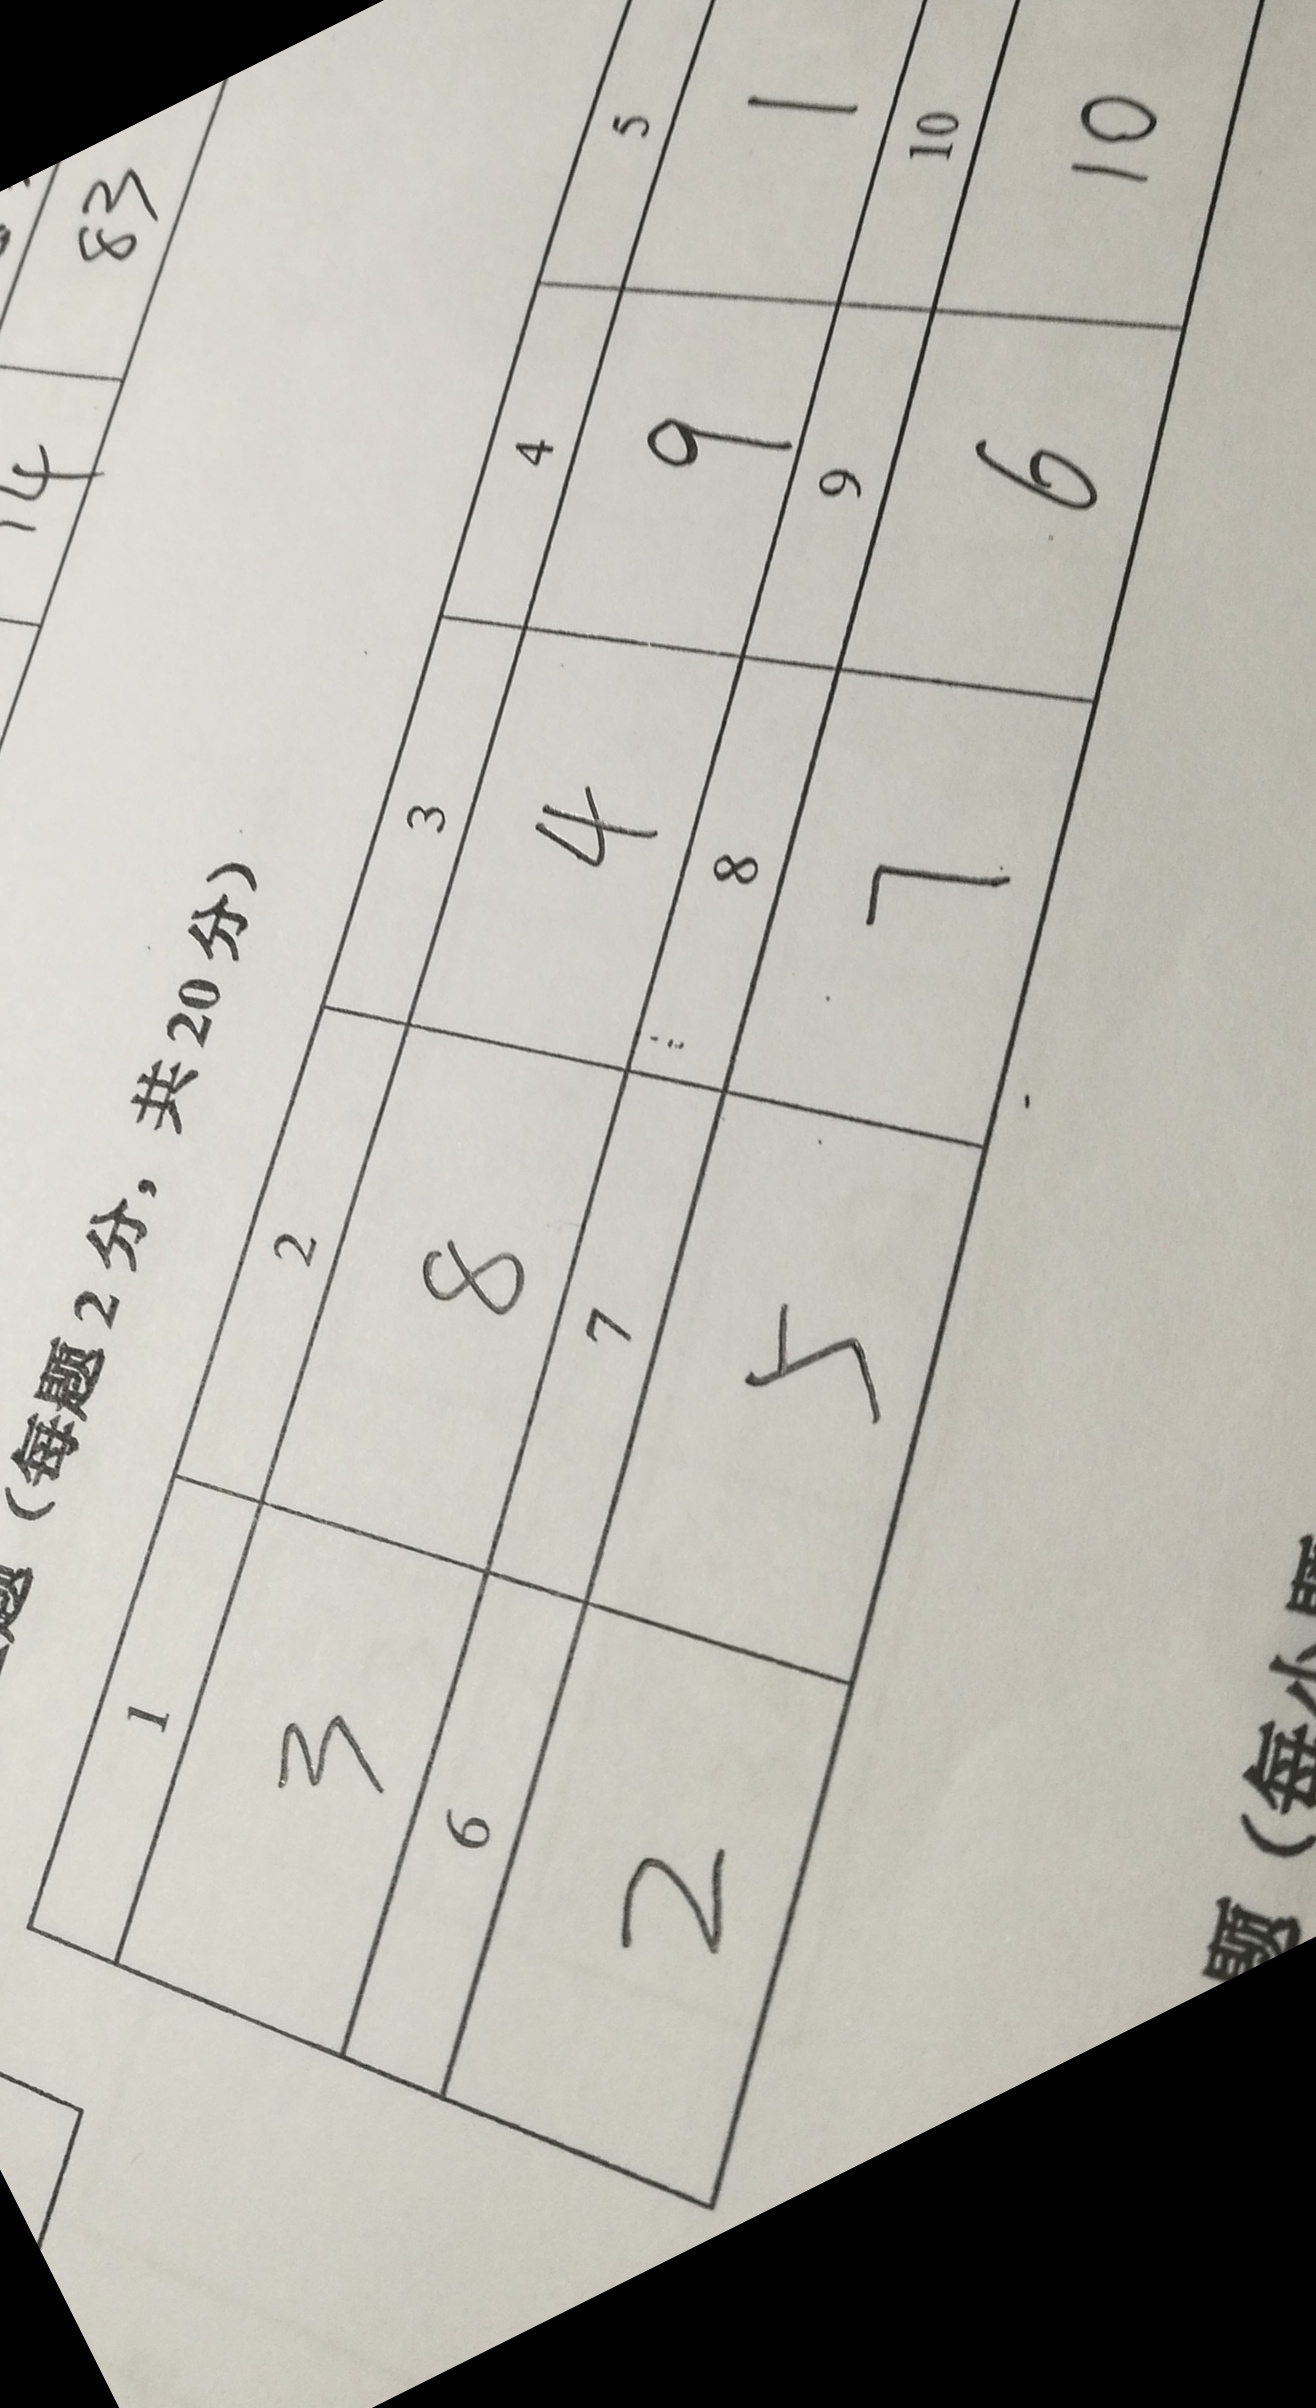 14 83
题（每题 2 分，共 20 分）
1 2 3 4 5
3 8 4 9 1
6 7 8 9 10
2 5 7 6 10
题（每小题